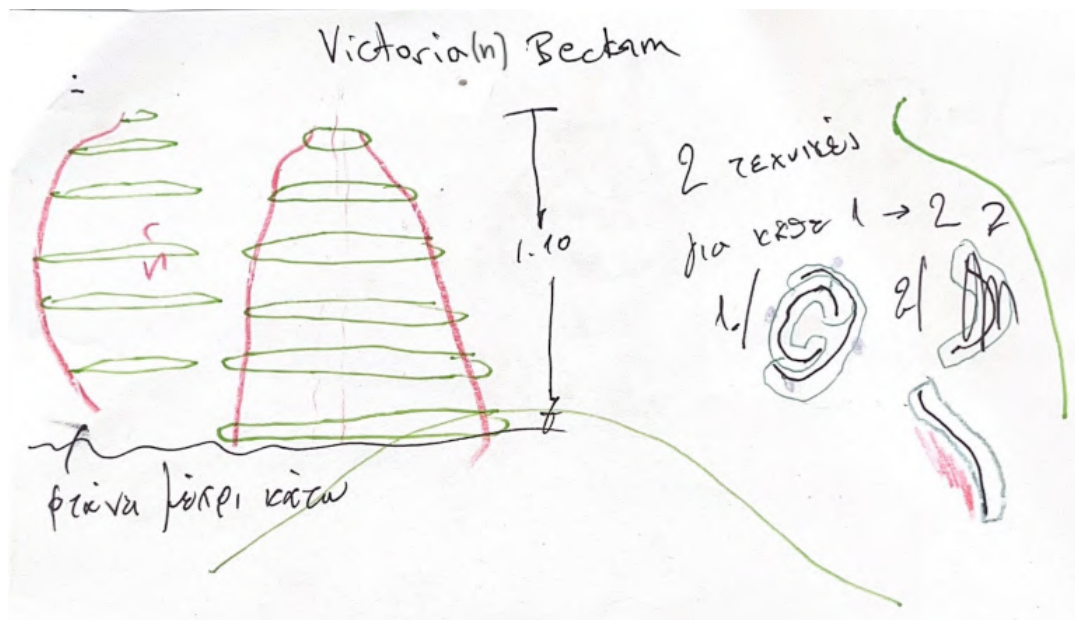 Victoria(n) Beckam
2 τεχνικές
για κάθε 1 → 2 2
1.10
1./
2/
φτάνει μέχρι κάτω